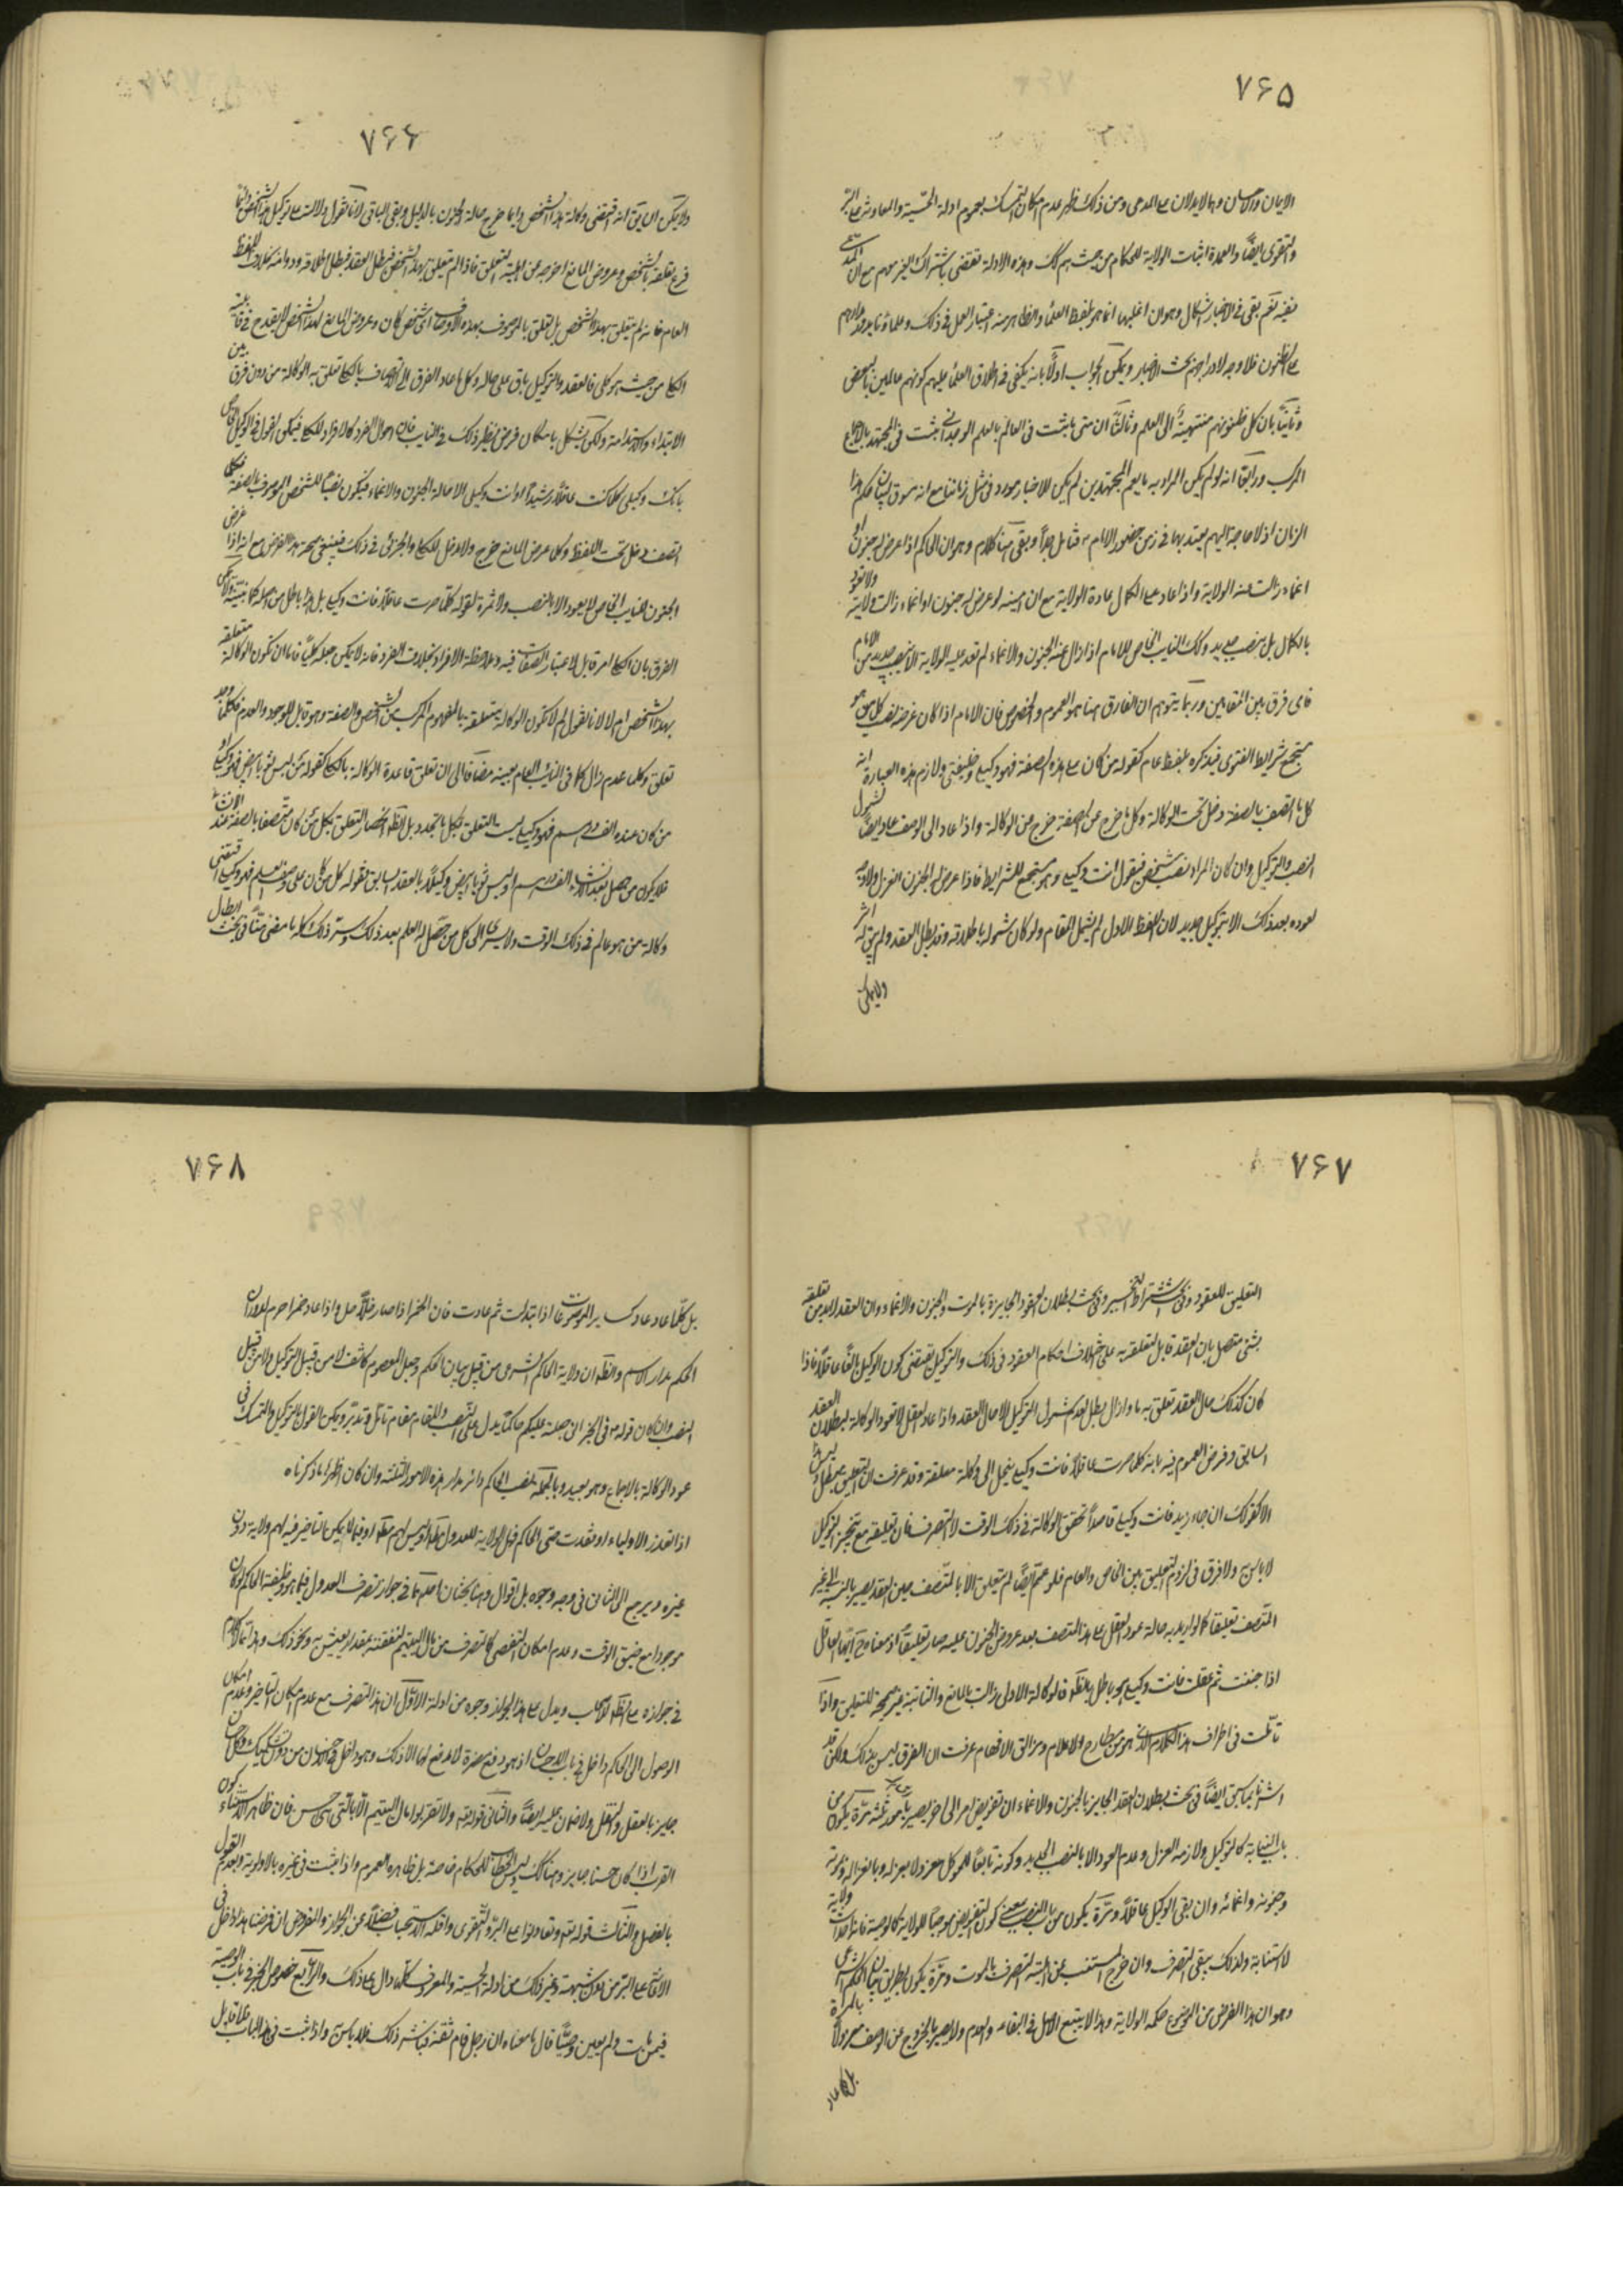 ۷۶۵
الایمان والاحسان وهما لایدلان علی المدعی ومن ذلک ظهر عدم امکان التمسک بعموم ادلة الحسبة والمعاونة علی البر
والتقوی ایضاً والعمدة اثبات الولایة للحکام من حیث هم کک وهذه الادلة تقتضی باشتراک الغیر معهم مع ان
فیه نعم بقی فی الاخبار اشکال وهو ان اغلبها انما هو بلفظ العلماء والظاهر منه اعتبار العلم فی ذلک وعلماؤنا
علی الظنون فلا وجه لاندراجهم تحت الاخبار ویمکن الجواب اولاً بانه یکفی فی اطلاق العلماء علیهم کونهم عالمین بالبعض
وثانیاً بان کل ظنونهم منتهیة الی العلم وثالثاً ان متی ما ثبت فی العالم بالعلم الوجدانی ثبت فی المجتهد بالاجماع
المرکب ورابعاً انه لو لم یکن المراد به ما یعم المجتهدین لم یکن للاخبار مورد فی مثل زماننا مع انه مسوق لبیان حکم هذا
الزمان اذ لا حاجة الیهم یعتد بها فی زمن حضور الامام فتأمل جداً وبقی هنا کلام وهو ان الحاکم اذا عرض له جنون او
اغماء زالت عنه الولایة واذا عاد علی الکمال عادة الولایة مع ان امینه لو عرض له جنون او اغماء زالت ولایته ولا تعود
بالکمال بل بنصب جدید وکک النایب الخاص للامام اذا زال عنه الجنون والاغماء لم تعد علیه الولایة الا بنصب جدید من الامام
فای فرق بین المقامین وربما یتوهم ان الفارق هنا هو العموم والخصوص فان الامام اذا کان غرضه نصب کل من هو
مجمع شرایط الفتوی فیذکره بلفظ عام کقوله من کان علی هذه الصفة فهو وکیلی وخلیفتی ولازم هذه العبارة انه
کل ما اتصف بالصفة دخل تحت الوکالة وکل ما خرج عن الصفة خرج من الوکالة واذا عاد الی الوصف عاد ایضاً لشمول
النصب والتوکیل وان کان المراد نصب شخص فیقول انت وکیلی وهو مستجمع للشرایط فاذا عرض له الجنون انعزل ولا وجه
لعوده بعد ذلک الا بتوکیل جدید لان اللفظ الاول لم یشمل المقام ولو کان شموله باطلاقه وقد بطل العقد ولم یبق له اثر
ولا یمکن
۷۶۶
ولا یمکن ان یق انه اقتضی وکالة هذا الشخص وانما خرج حالة الجنون بالدلیل وبقی الباقی لانا نقول دلالته علی توکیل هذا الشخص انما
فرع تعلقه بالشخص وعروض المانع اخرجه عن اهلیة التعلق فاذا لم یتعلق بهذا الشخص فبطل العقد فبطل اطلاقه ودوامه بخلاف اللفظ
العام فانه لم یتعلق بهذا الشخص بل تعلق بالموصوف بهذه الاوصاف ای شخص کان وعروض المانع لهذا الشخص لا یقدح فی قابلیة
الکلی من حیث هو کلی فالعقد والتوکیل باق علی حاله وکل ما عاد الفرد الی الاتصاف بالکلی تعلق به الوکالة من دون فرق بین
الابتداء والاستدامة ولکن یشکل بامکان فرض نظیر ذلک فی النایب فان احوال الفرد کالافراد للکلی فیمکن القول فی الوکیل الخاص
بانک وکیلی کلما کنت عاقلاً رشیداً او انت وکیلی الا حالة الجنون والاغماء فیکون نصباً للشخص الموصوف بالصفة فکلما
اتصف دخل تحت اللفظ وکل ما عرض المانع خرج ولا دخل للکلی والجزئی فی ذلک فینبغی صحة هذا الفرض مع انه اذا عرض
الجنون للنایب الخاص لا یعود الا بالنصب ولا ثمرة لقوله کلما صرت عاقلاً فانت وکیلی بل هذا باطل من اصله کما نبینه ولا یمکن
الفرق بان الکلی امر قابل لاعتبار الصفات فیه وملاحظة الافراد بخلاف الفرد فانه لا یمکن جعله کلیاً فاما ان تکون الوکالة متعلقة
بهذا الشخص ام لا لانا نقول لم لا تکون الوکالة متعلقة بالمفهوم المرکب من الشخص والصفة وهو قابل للوجود والعدم فکلما وجد
تعلق وکلما عدم زال کما فی النائب العام بعینه مضافا الی ان تعلق قاعدة الوکالة بالکلی کقوله من لبس ثوبا ابیض فهو وکیلی او
من کان عنده الف درهم فهو وکیلی لیست بالتعلق بکل ما تجدد بل الظ انحصار التعلق بکل من کان متصفا بالصفة عند الانشاء
فلا یکون من حصل بعد الانشاء الف درهم او لبس ثوبا ابیض وکیلاً بالعقد السابق فقوله کل من کان علی وصف العلم فهو وکیلی اقتضی
وکالة من هو عالم فی ذلک الوقت ولا یسری الی کل من حصل له العلم بعد ذلک وسر ذلک کله ما مضی منا فی بحث ابطال
۷۶۷
التعلیق للعقود وفی بحث اشتراط التنجیز وفی بحث بطلان العقود الجایزة بالموت والجنون والاغماء وان العقد لابد من تعلقه
بشئ متصل بان العقد قابل لتعلقه به علی اختلاف احکام العقود فی ذلک والتوکیل یقتضی کون الوکیل بالغاً عاقلاً فاذا
کان کذلک حال العقد تعلق به ما دام وان زال بطل لعدم شمول التوکیل الا حال العقد واذا عاد العقل لا تعود الوکالة لبطلان العقد
السابق وفرض العموم فیه بانه کلما صرت عاقلاً فانت وکیلی ینحل الی وکالة معلقة وقد عرفت ان التعلیق مبطل ولیس هذا
الا کقولک ان جاء زید فانت وکیلی قاصداً تحقق الوکالة فی ذلک الوقت لا التصرف فان تعلیقه مع تنجیز التوکیل
لا باس به ولا فرق فی لزوم التعلیق بین الخاص والعام فلو عمم ایضاً لم یتعلق الا بالمتصف حین العقد یصیر بالنسبة الی غیر
المتصف تعلیقا کما لو ارید به حالة عود العقل علی هذا المتصف بعد عروض الجنون علیه صار تعلیقاً اذ معناه ح ایها العاقل
اذا جننت ثم عقلت فانت وکیلی هو باطل بالظ فالوکالة الاولی زالت بالمانع والثانیة غیر صحیحة للتعلیق واذا
تأملت فی اطراف هذا الکلام الذی هو من مطارح الاعلام ومزالق الافهام عرفت ان الفرق لیس بذلک ولکن قد
اشرنا فیما سبق ایضاً فی بحث بطلان العقد الجایز بالجنون والاغماء ان تفویض امر الی اخر یصیر بامور ثلثة مرة یکون من
باب النیابة کالتوکیل ولازمه العزل وعدم العود الا بالنصب الجدید وکونه تابعاً للموکل معزولا بعزله وبانعزاله وموته
وجنونه واغمائه وان بقی الوکیل عاقلاً ومرة یکون من باب النصب بمعنی کون التفویض موجباً للولایة کالوصیة فانها احداث ولایة
لا استنابة ولذلک یبقی التصرف وان خرج المستنیب عن اهلیة التصرف بالموت ومرة یکون بطریق بیان الحکم الشرعی
وهو ان هذا الفرض من الموضوع حکمه الولایة وهذا لا یتبع الاصل فی البقاء والعدم ولا یصیر بالخروج عن الوصف معزولاً بالمرة
بل کلما عاد
۷۶۸
بل کلما عاد عاد کسایر الموضوعات اذا تبدلت ثم عادت فان الخمر اذا صار خلاً حل واذا عاد خمرا حرم لدوران
الحکم مدار الاسم والظ ان ولایة الحاکم الشرعی من قبیل بیان الحکم وجعل المعصوم کاشف لا من قبیل التوکیل ولا من قبیل
النصب وان کان قوله فی الخبر انی جعلته علیکم حاکماً یدل علی النصب وللمقام مقام تأمل وتدبر ویمکن القول بالتوکیل والتمسک فی
عود الوکالة بالاجماع وهو بعید وبالجملة منصب الحاکم دائر مدار هذه الامور الثلثة وان کان اظهرها ما ذکرناه
اذا تعذر الاولیاء او فقدت حتی الحاکم فهل الولایة للعدول مط او لیس لهم مط او فیما لا یمکن التاخیر فیه لهم ولایة دون
غیره ویرجع الی الثانی فی وجه وجوه بل اقوال وهنا بحثان احدهما فی جواز تصرف العدول فیما هو وظیفة الحاکم لو کان
موجودا مع ضیق الوقت وعدم امکان التفصی کالتصرف من مال الیتیم لنفقته بمقدار یعیش به ونحو ذلک وهذا مما لا کلام
فی جوازه علی الظ الاصحاب ویدل علی هذا الجواز وجوه من ادلة الاول ان هذا التصرف مع عدم امکان التاخیر وعدم امکان
الوصول الی الحاکم داخل فی باب الاحسان اذ هو دفع مضرة لا دفع لها الا ذلک وهو داخل فی الاحسان من دون شک وکل احسان
جایز بالعقل والنقل ولا ضمان علیه ایضاً والثانی قوله تع ولا تقربوا مال الیتیم الا بالتی هی احسن فان ظاهر الاستثناء کون
القرب اذا کان حسنا جایز وهنالک لیس الخطاب للحکام خاصة بل ظاهره العموم واذا ثبت فی غیره بالاولویة وبعدم القول
بالفصل والثالث قوله تع وتعاونوا علی البر والتقوی واقله الاستحباب فضلاً عن الجواز والمفروض ان فرضنا هذا داخل فی
الاعانة علی البر من دون شبهة وغیر ذلک من ادلة الحسبة والمعروف کلها دال علی ذلک والرابع خصوص الخبر فی باب الوصیة
فیمن مات ولم یعین وصیاً قال ما معناه ان رجل قام ثقة فباشر ذلک فلا باس به واذا ثبت فی هذا الباب فلا قابل